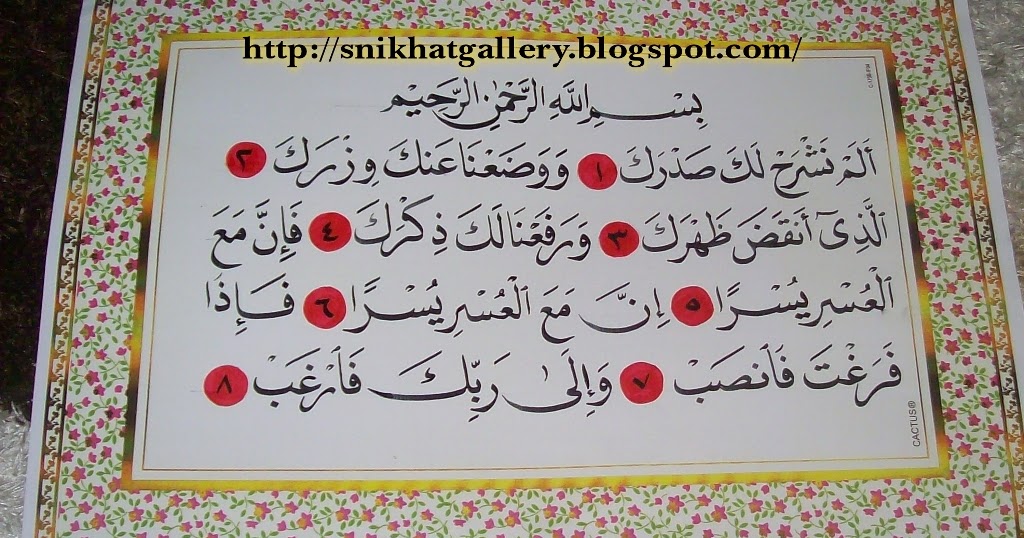 http://snikhatgallery.blogspot.com/
بِسْمِ اللَّهِ الرَّحْمَٰنِ الرَّحِيْمِ
أَلَمْ نَشْرَحْ لَكَ صَدْرَكَ ١ وَوَضَعْنَا عَنكَ وِزْرَكَ ٢
الَّذِىٓ أَنقَضَ ظَهْرَكَ ٣ وَرَفَعْنَا لَكَ ذِكْرَكَ ٤ فَإِنَّ مَعَ
الْعُسْرِ يُسْرًا ٥ إِنَّ مَعَ الْعُسْرِ يُسْرًا ٦ فَإِذَا
فَرَغْتَ فَانصَبْ ٧ وَإِلَىٰ رَبِّكَ فَارْغَب ٨
CACTUS®